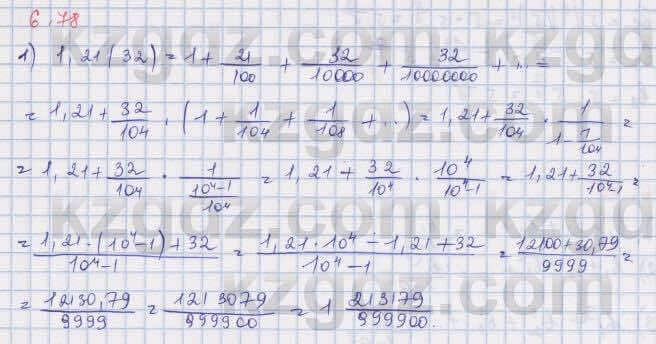 6.78
1) 1,21(32) = 1 + 21/100 + 32/10000 + 32/10000000 + .. =
= 1,21 + 32/104 · (1 + 1/104 + 1/108 + ..) = 1,21 + 32/104 · 1/(1 - 1/104) =
= 1,21 + 32/104 · 1/((10⁴-1)/104) = 1,21 + 32/10⁴ · 10⁴/(10⁴-1) = 1,21 + 32/(10⁴-1) =
= (1,21 · (10⁴-1) + 32)/(10⁴-1) = (1,21 · 10⁴ - 1,21 + 32)/(10⁴-1) = (12100 + 30,79)/9999 =
= 12130,79/9999 = 1213079/999900 = 1 213179/999900.
kzgdz.com